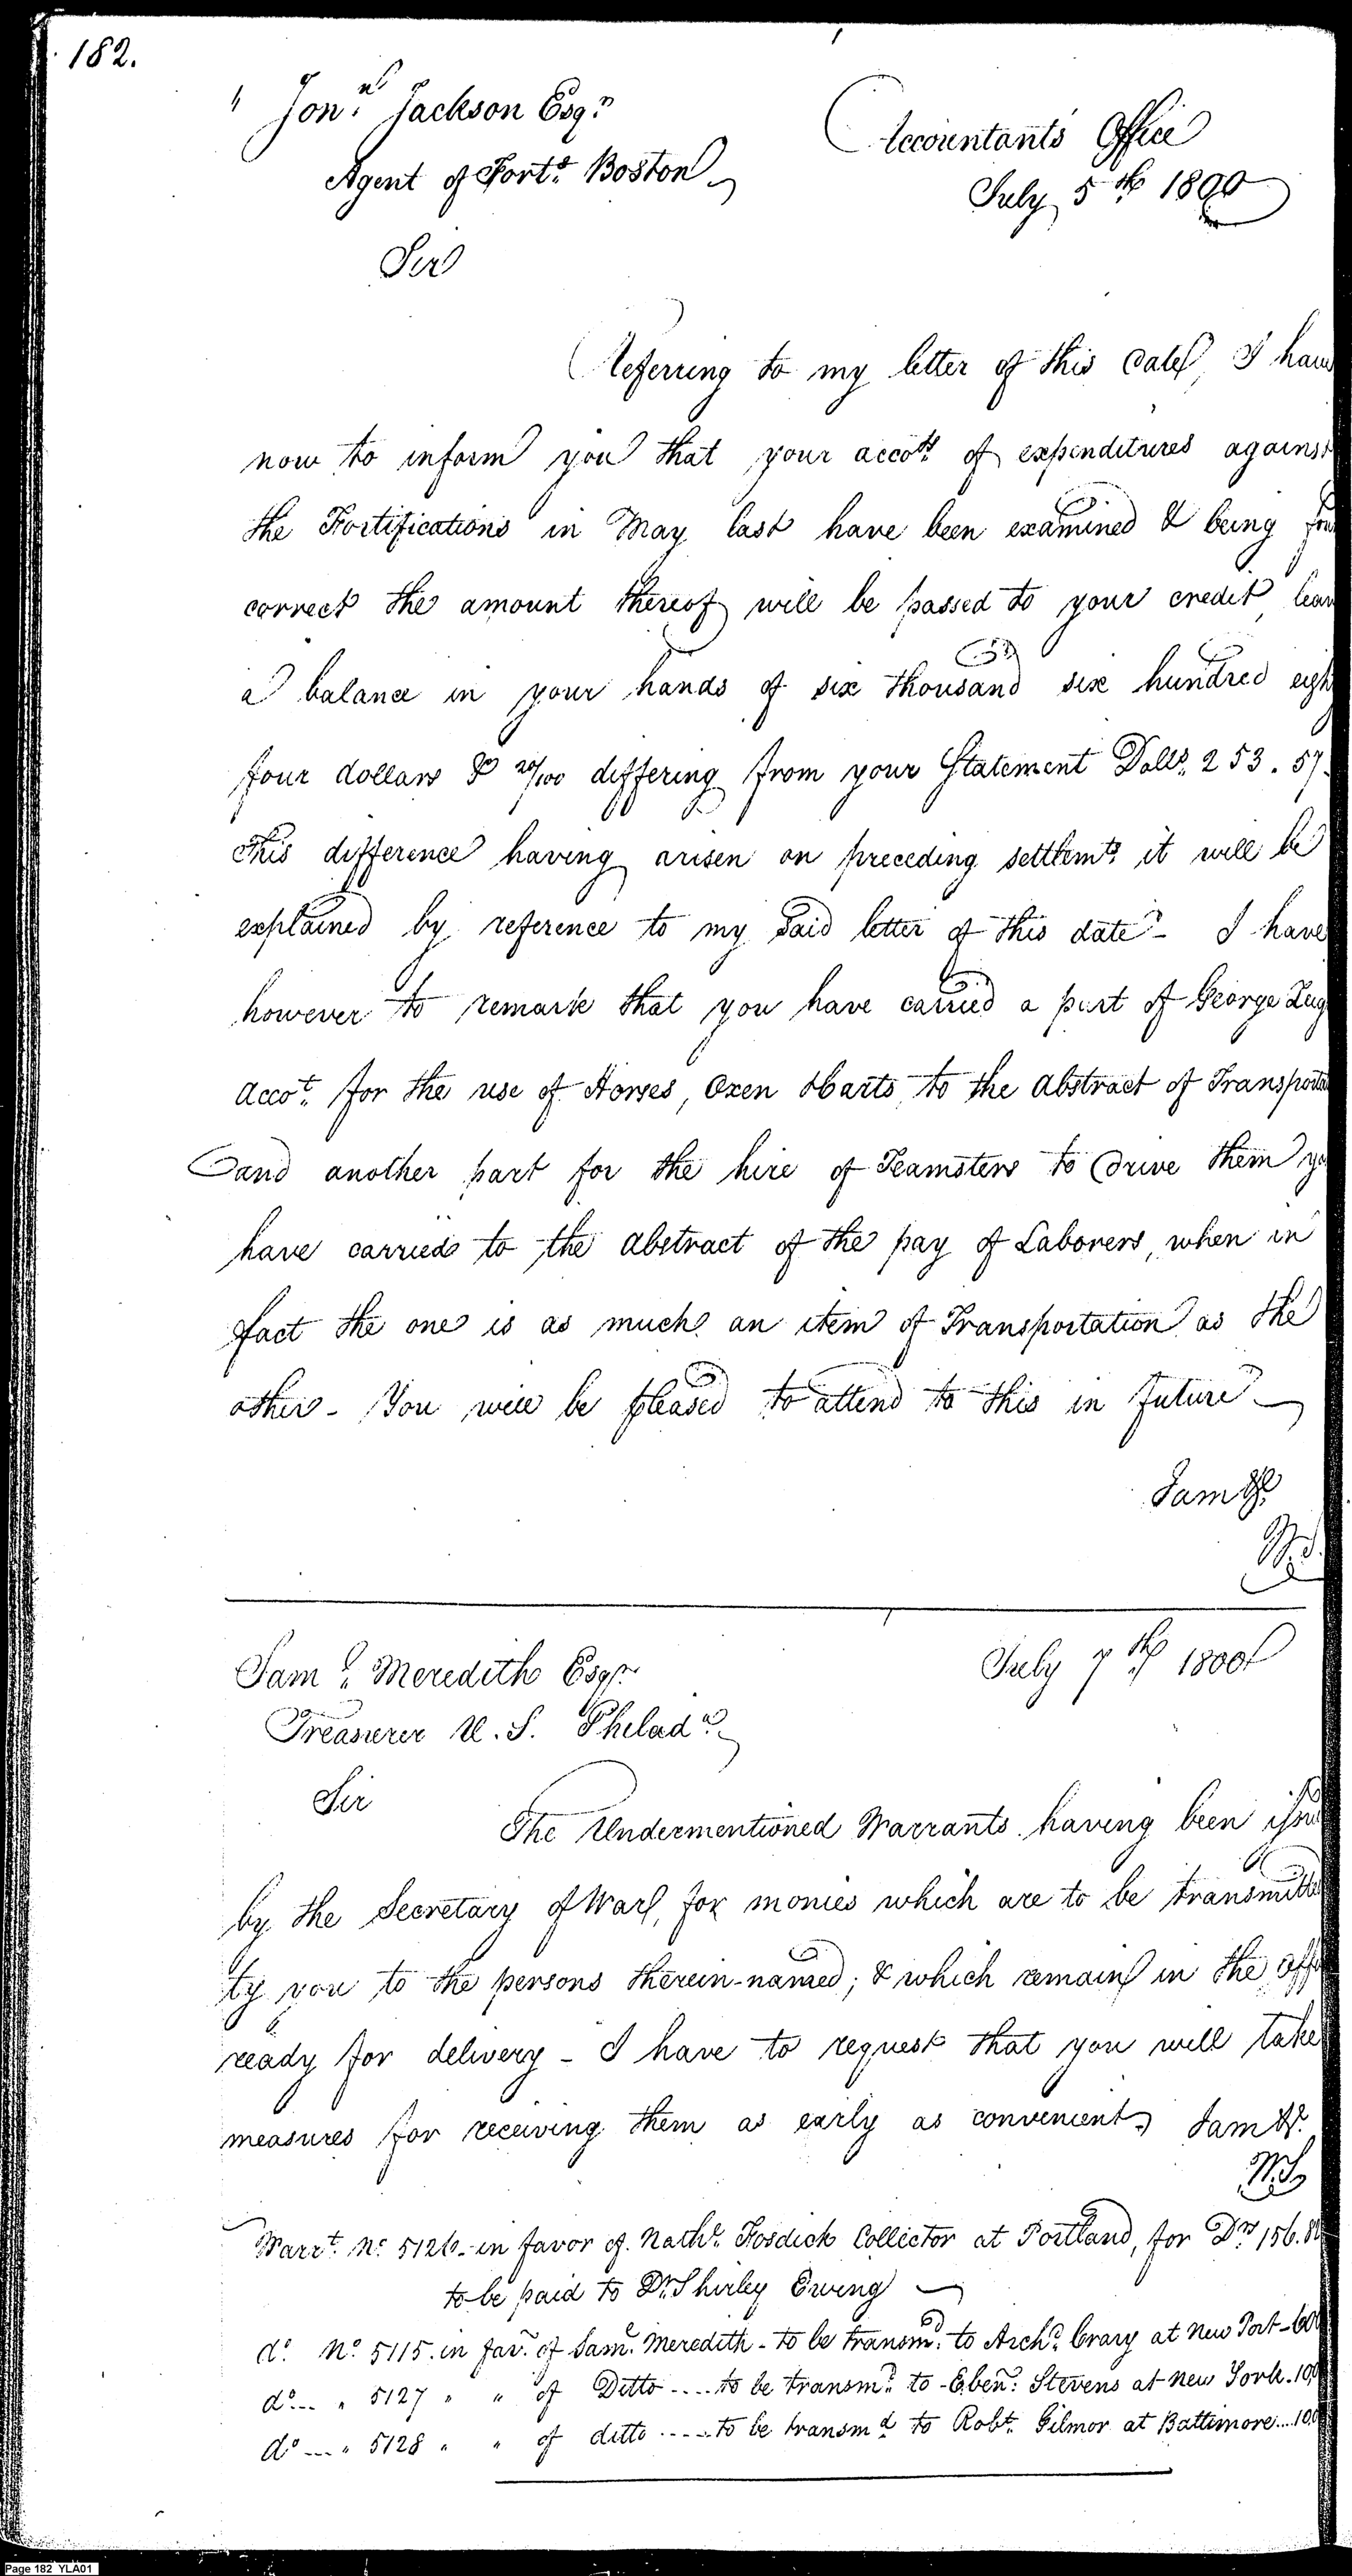 182.
" Jonn. Jackson Esqr.
Accountants Office
Agent of Forts. Boston
July 5th 1800
Sir
Referring to my letter of this date, I have
now to inform you that your accots. of expenditures against
the Fortifications in May last have been examined & being
correct the amount thereof will be passed to your credit
a balance in your hands of six thousand six hundred
four dollars & 20/100 differing from your Statement Dolls. 253.57.
this difference having arisen on preceding settlemts. it will be
explained by reference to my said letter of this date - I have
however to remark that you have carried a part of George
Accot. for the use of Horses, Oxen & Carts, to the Abstract of
and another part for the hire of Teamsters to drive them
have carried to the abstract of the pay of Laborers, when in
fact the one is as much an item of Transportation as the
other - You will be pleased to attend to this in future
I am &c.
W.S.
Saml. Meredith Esqr.
July 7th 1800
Treasurer U.S. Philada.
Sir
The Undermentioned Warrants having been
by the Secretary of War, for monies which are to be
by you to the persons therein-named; & which remain in the
ready for delivery - I have to request that you will take
measures for receiving them as early as convenient, I am &c.
W.S.
Warrt. No. 5126 - in favor of Nathl. Fosdick Collector at Portland, for Drs. 156.
to be paid to Dr. Shirley Ewing
do. No. 5115. in favr. of Saml. Meredith - to be transmd. to Archd. Crary at New Port -
do... " 5127 " " of Ditto .... to be transmd. to - Ebenr. Stevens at New York.
do... " 5128 " " of ditto ..... to be transmd to Robt. Gilmor at Baltimore....
Page 182 YLA01